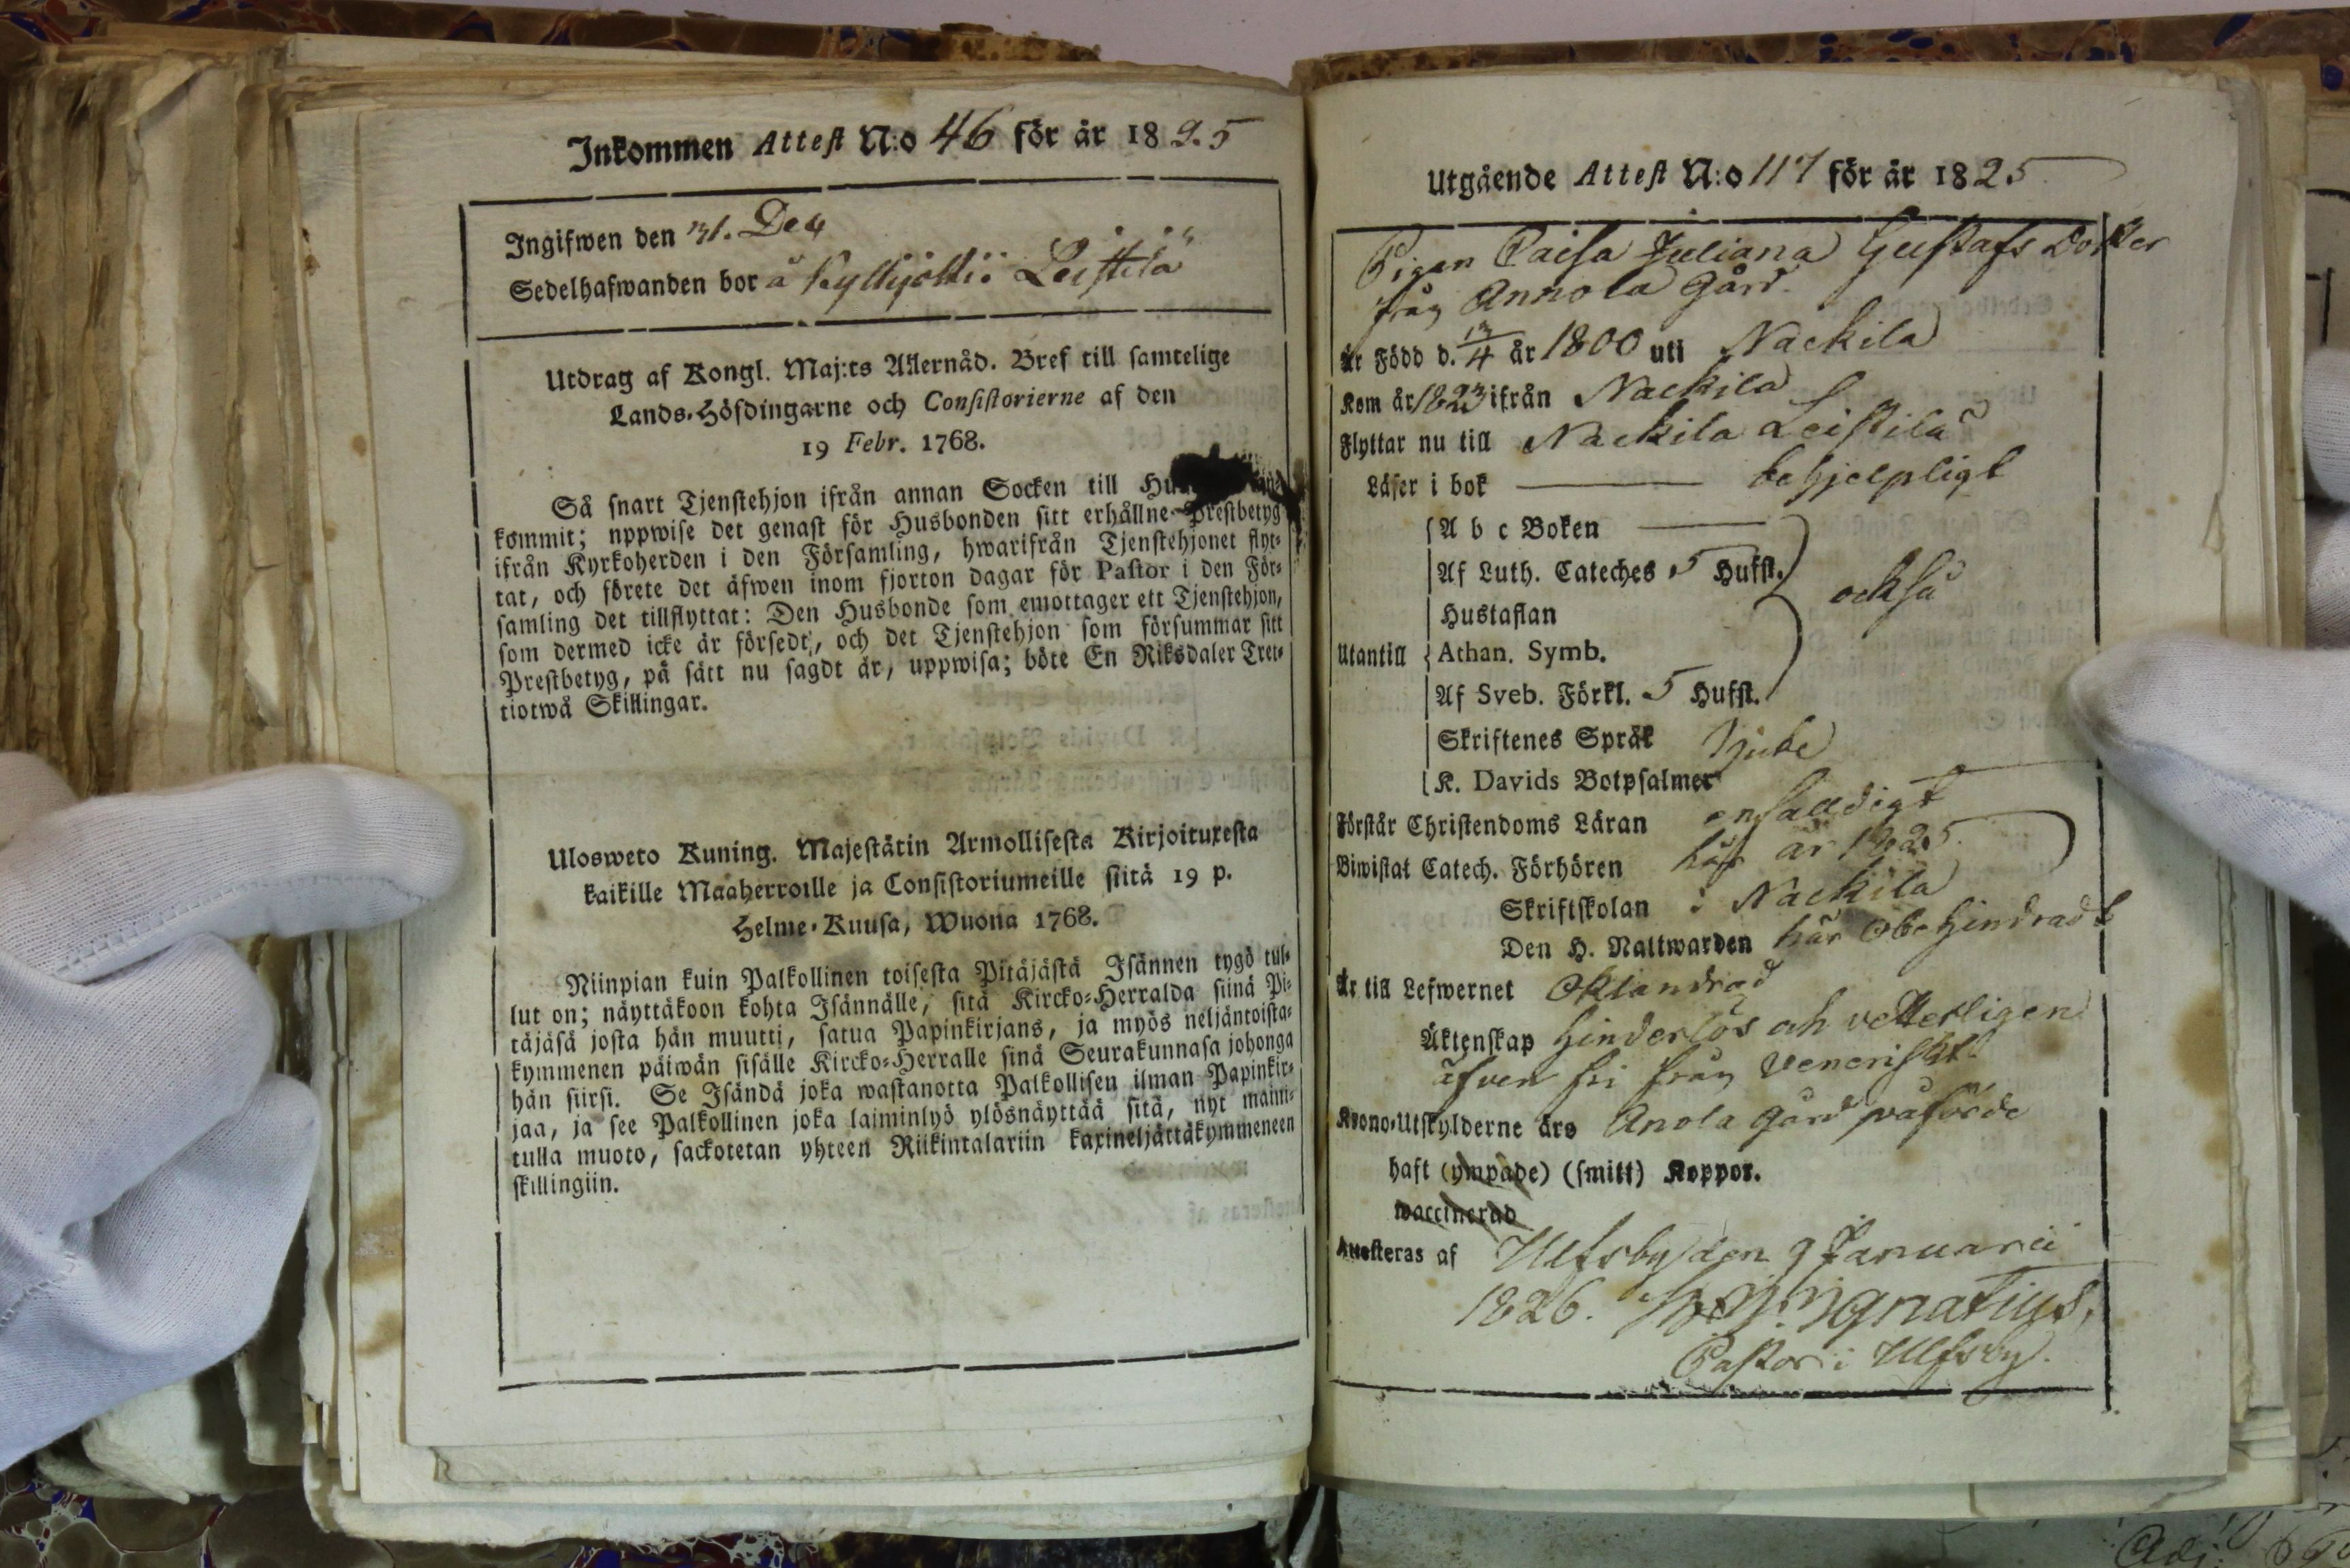 Inkommen Attest N:o 46 för år 1825
Ingifwen den 31. Dec
Sedelhafwanden bor å Leistilä
Utdrag af Kongl. Maj:ts Allernåd. Bref till samtelige
Lands-Höfdingarne och Consistorierne af den
19 Febr. 1768.
Så snart Tjenstehjon ifrån annan Socken till
kommit; nppwise det genast för Husbonden sitt erhållne Prestbetyg
ifrån Kyrkoherden i den Församling, hwarifrån Tjenstehjonet flyt-
tat, och förete det äfwen inom fjorton dagar för Pastor i den För-
samling det tillflyttat: Den Husbonde som emottager ett Tjenstehjon,
som dermed icke är försedt, och det Tjenstehjon som försummar sitt
Prestbetyg, på sätt nu sagdt är, uppwisa; böte En Riksdaler Tret-
tiotwå Skillingar.
Ulosweto Kuning. Majestätin Armollisesta Kirjoituxesta
kaikille Maaherroille ja Consistoriumeille siitä 19 p.
Helme-Kuusa, Wuona 1768.
Niinpian kuin Palkollinen toisesta Pitäjästä Isännen tygö tul-
lut on; näyttäkoon kohta Isännälle, sitä Kircko-Herralda siinä Pi-
täjäsä josta hän muutti, satua Papinkirjans, ja myös neljäntoista-
kymmenen päiwän sisälle Kircko-Herralle sinä Seurakunnasa johonga
hän siirsi. Se Isändä joka wastanotta Palkollisen ilman Papinkir-
jaa, ja see Palkollinen joka laiminlyö ylösnäyttää sitä, nyt maini-
tulla muoto, sackotetan yhteen Riikintalariin kaxineljättäkymmeneen
skillingiin.
Utgående Attest N:o 117 för år 1825
Pigan Caisa Juliana Gustafs Dotter
från Annola Gård.
Är Född d. 13/4 år 1800 uti Nackila
Kom år 1823 ifrån Nackila
Flyttar nu till Nackila Leistilä
Läser i bok behjelpligt
A b c Boken
Af Luth. Cateches 5 Hufst.
också
Hustaflan
Utantill Athan. Symb.
Af Sveb. Förkl. 5 Hufst.
Skriftenes Språk
K. Davids Botpsalmer
Förstår Christendoms Läran enfalldigt
Biwistat Catech. Förhören här år 1825
Skriftskolan i Nackila
Den H. Nattwarden här obehindradt
Är till Lefwernet Oklandrad
Äktenskap hinderlös och vetterligen
äfven fri från Veneriskt
Krono-Utskylderne äro Anola Gård påförde
haft (ympade) (smitt) Koppor.
waccinerad
Attesteras af Ulfsby den 9 Januarii
1826. Ignatius,
Pastor i Ulfsby.